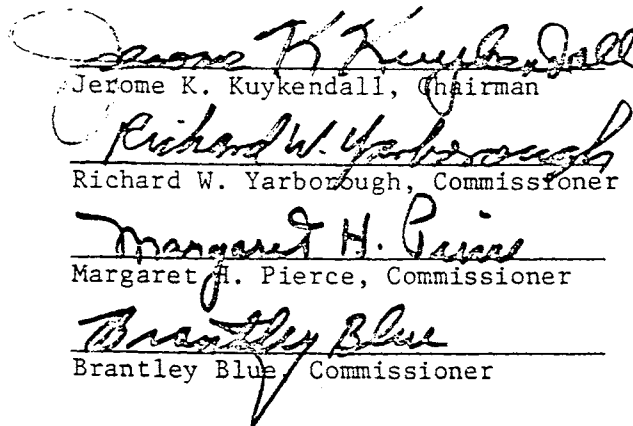 Jerome K Kuykendall
Jerome K. Kuykendall, Chairman
Richard W. Yarborough
Richard W. Yarborough, Commissioner
Margaret H. Pierce
Margaret H. Pierce, Commissioner
Brantley Blue
Brantley Blue, Commissioner